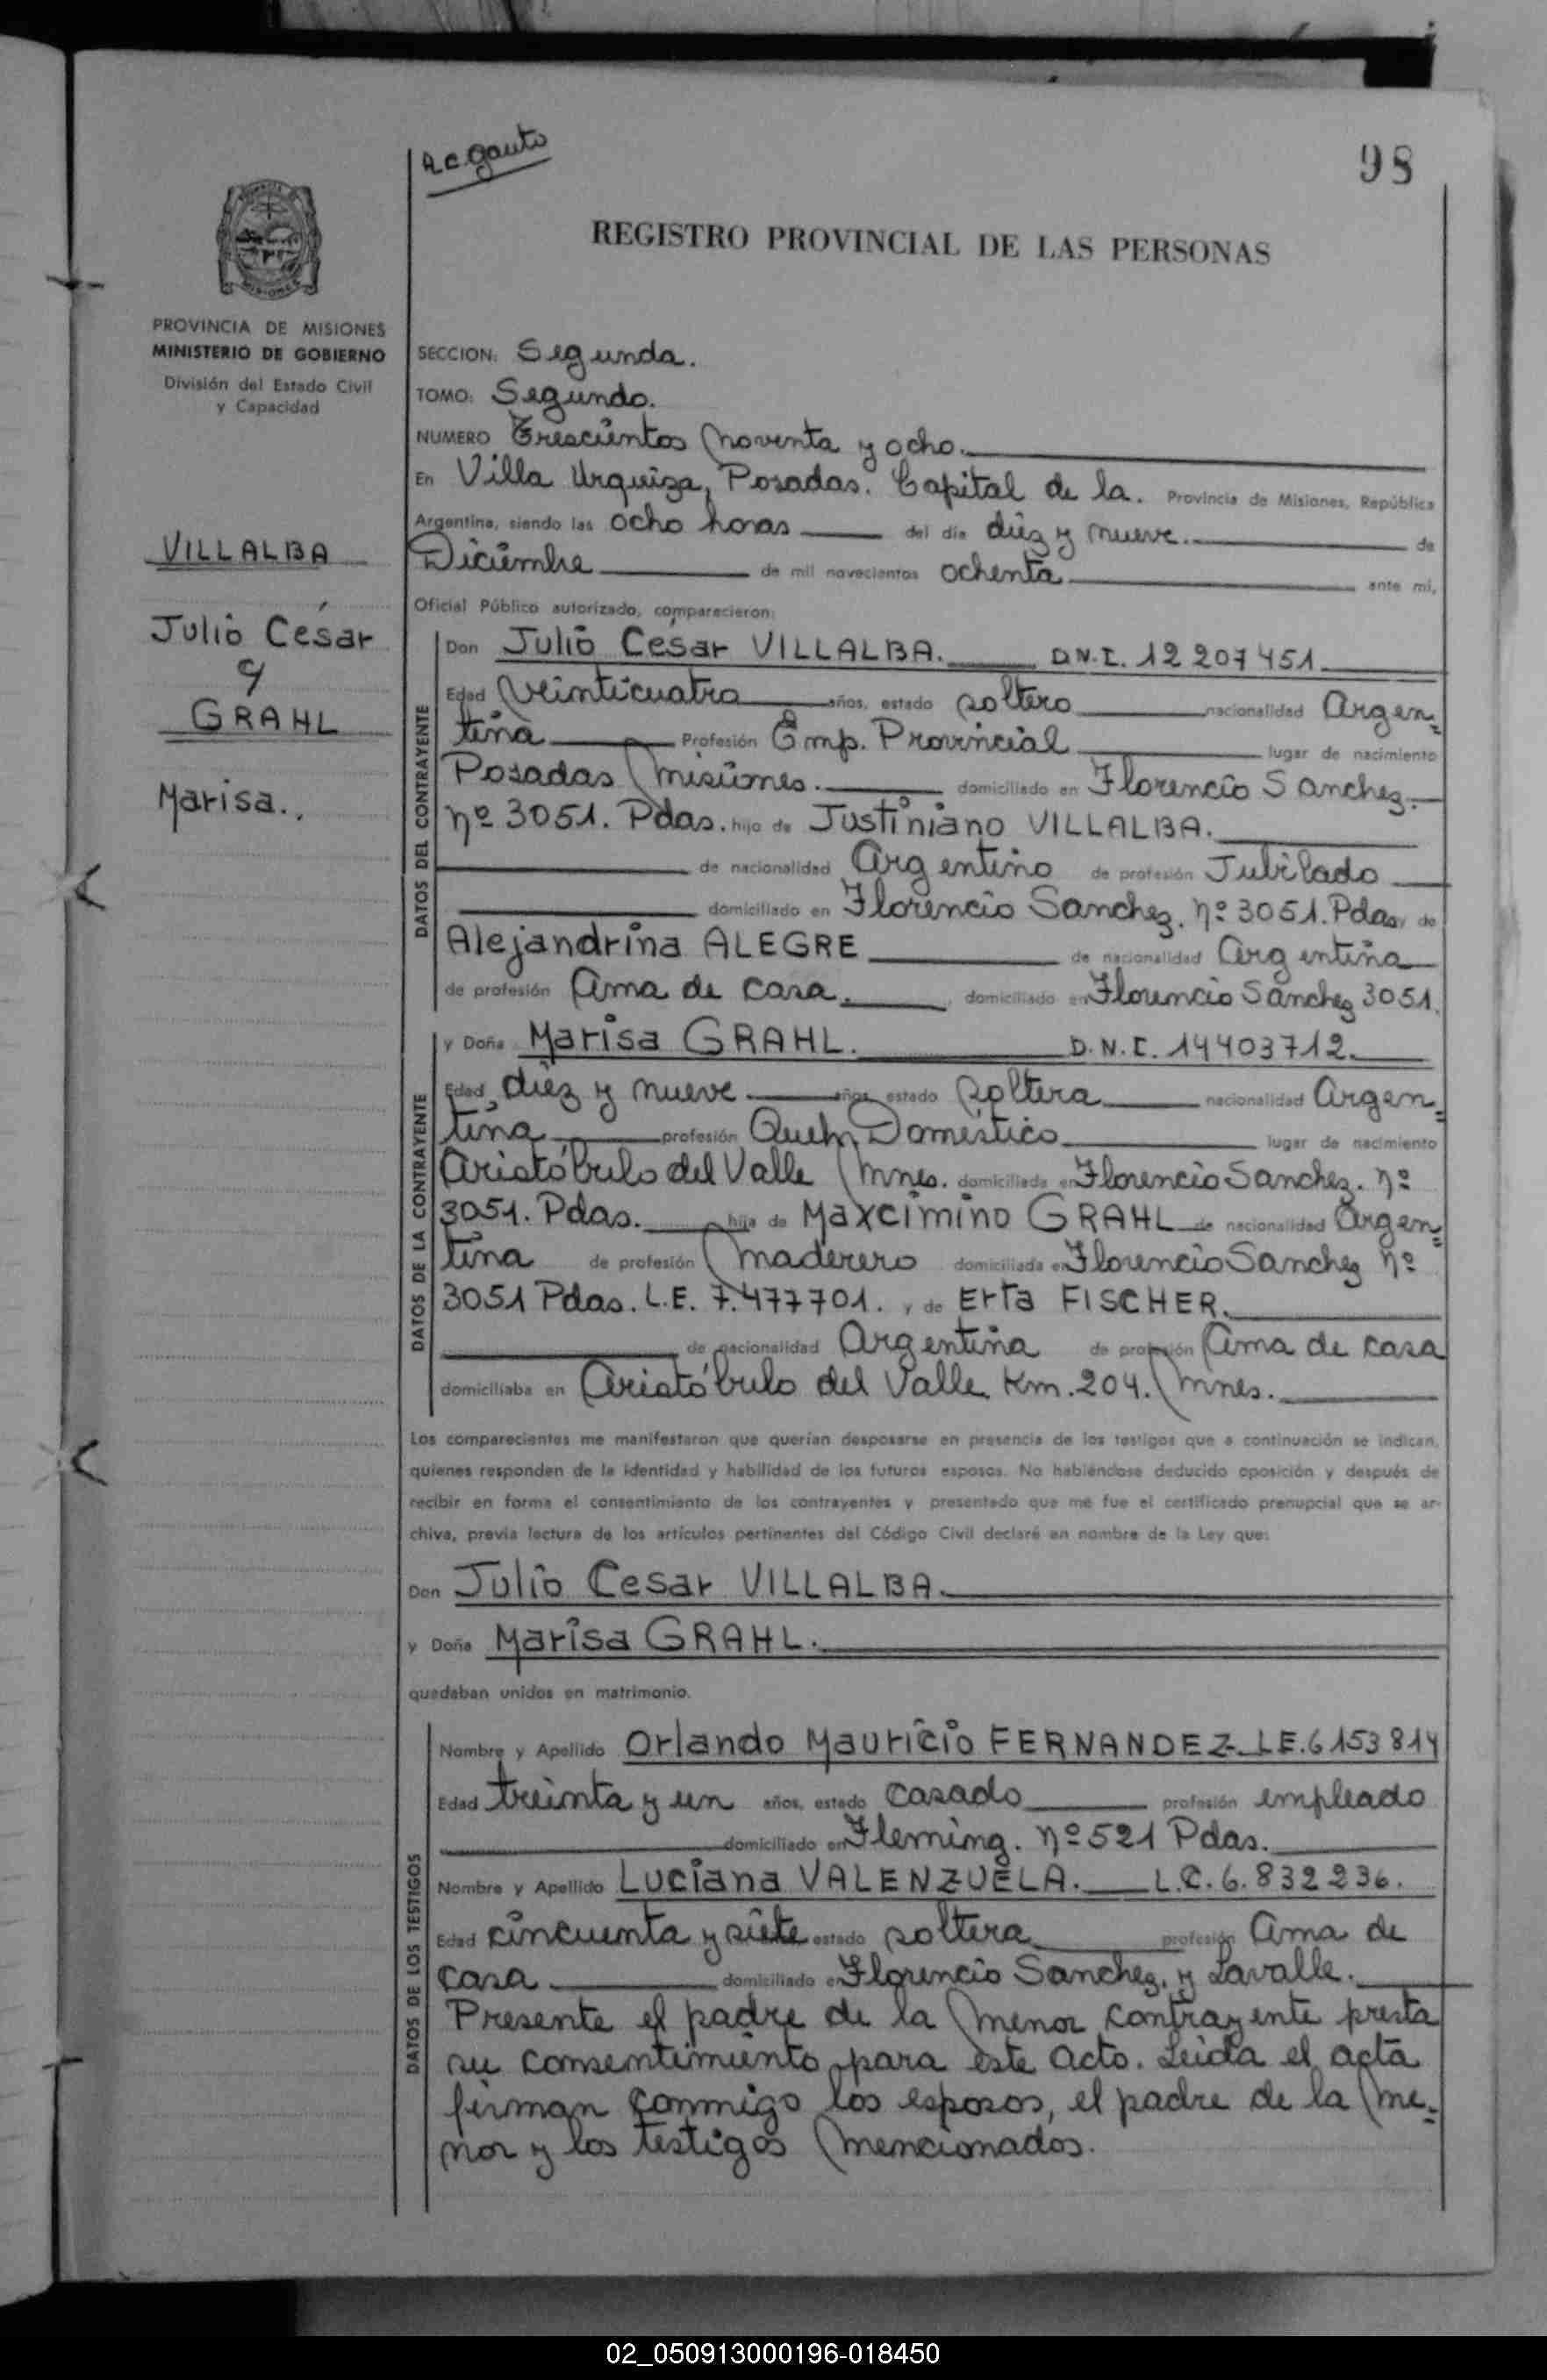 98
REGISTRO PROVINCIAL DE LAS PERSONAS
PROVINCIA DE MISIONES
MINISTERIO DE GOBIERNO
División del Estado Civil
y Capacidad
VILLALBA
Julio César
y
GRAHL
Marisa..
SECCION: Segunda.
TOMO: Segundo.
NUMERO Trescientos noventa y ocho.
En Villa Urquiza, Posadas. Capital de la. Provincia de Misiones, República
Argentina, siendo las ocho horas del día diez y nueve. de
Diciembre de mil novecientos ochenta ante mí,
Oficial Público autorizado, comparecieron:
DATOS DEL CONTRAYENTE
Don Julio César VILLALBA. D.N.I. 12 207 451
Edad veinticuatro años, estado soltero nacionalidad Argen=
tina Profesión Emp. Provincial lugar de nacimiento
Posadas Misiones. domiciliado en Florencio Sanchez.
nº 3051. Pdas. hijo de Justiniano VILLALBA.
de nacionalidad Argentino de profesión Jubilado
domiciliado en Florencio Sanchez. nº 3051. Pdas, de
Alejandrina ALEGRE de nacionalidad Argentina
de profesión Ama de casa. domiciliado en Florencio Sanchez 3051.
DATOS DE LA CONTRAYENTE
y Doña Marisa GRAHL. D.N.I. 14403712.
Edad diez y nueve años, estado soltera nacionalidad Argen=
tina profesión Queh. Doméstico lugar de nacimiento
Aristóbulo del Valle Mnes. domiciliada en Florencio Sanchez. nº
3051. Pdas. hija de Maxcimino GRAHL de nacionalidad Argen=
tina de profesión Maderero domiciliada en Florencio Sanchez nº
3051 Pdas. L.E. 7.477701. y de Erta FISCHER.
de nacionalidad Argentina de profesión Ama de casa
domiciliaba en Aristóbulo del Valle Km. 204. Mnes.
Los comparecientes me manifestaron que querían desposarse en presencia de los testigos que a continuación se indican,
quienes responden de la identidad y habilidad de los futuros esposos. No habiéndose deducido oposición y después de
recibir en forma el consentimiento de los contrayentes y presentado que me fue el certificado prenupcial que se ar-
chiva, previa lectura de los artículos pertinentes del Código Civil declaré en nombre de la Ley que:
Don Julio Cesar VILLALBA.
y Doña Marisa GRAHL.
quedaban unidos en matrimonio.
DATOS DE LOS TESTIGOS
Nombre y Apellido Orlando Mauricio FERNANDEZ L.E. 6153814
Edad treinta y un años, estado casado profesión empleado
domiciliado en Fleming. nº 521 Pdas.
Nombre y Apellido Luciana VALENZUELA. L.C. 6.832236.
Edad cincuenta y siete estado soltera profesión Ama de
casa domiciliado en Florencio Sanchez. y Lavalle.
Presente el padre de la menor contrayente presta
su consentimiento para este acto. Leida el acta
firman conmigo los esposos, el padre de la me=
nor y los testigos mencionados.
02_050913000196-018450